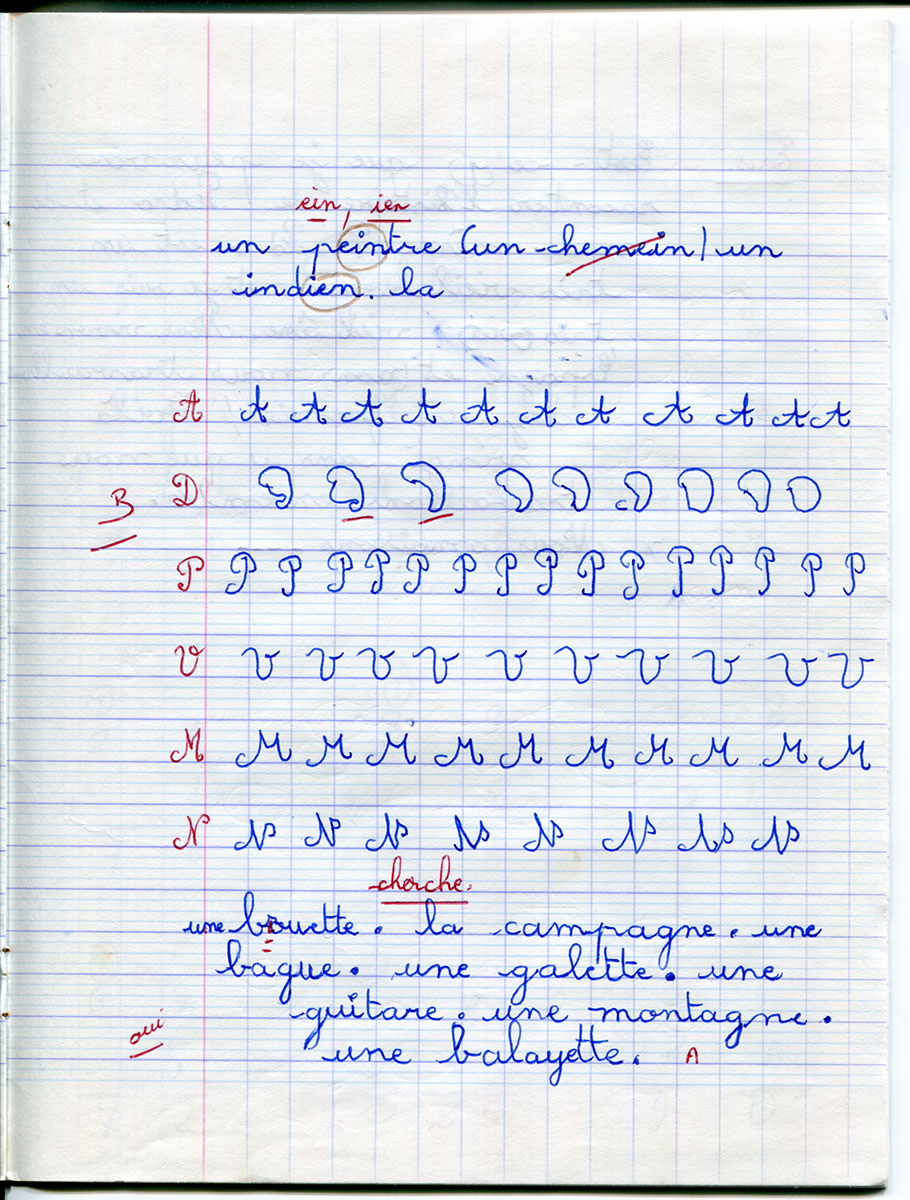 ein, ien
un peintre (un chemein) un
indien. la
A A A A A A A A A A A A
B
D D D D D D D D D D
P P P P P P P P P P P P P P P P
V V V V V V V V V V V
M M M M M M M M M M M
N N N N N N N N N
cherche.
une brouette. la campagne. une
bague. une galette. une
guitare. une montagne.
oui
une balayette. A